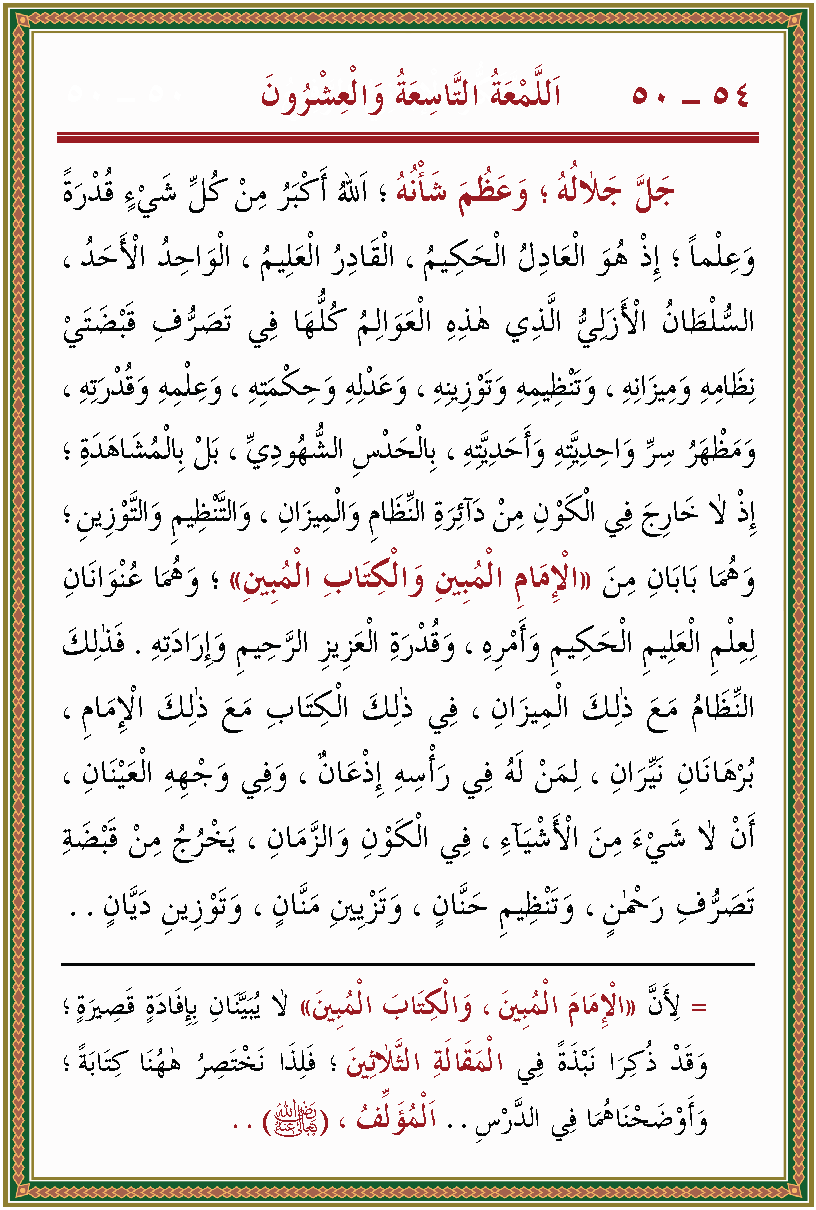 اَللَّمْعَةُ التَّاسِعَةُ وَالْعِشْرُونَ ٥٤ – ٥٠
جَلَّ جَلَالُهُ ؛ وَعَظُمَ شَأْنُهُ ؛ اَللهُ أَكْبَرُ مِنْ كُلِّ شَيْءٍ قُدْرَةً
وَعِلْماً ؛ إِذْ هُوَ الْعَادِلُ الْحَكِيمُ ، الْقَادِرُ الْعَلِيمُ ، الْوَاحِدُ الْأَحَدُ ،
السُّلْطَانُ الْأَزَلِيُّ الَّذِي هٰذِهِ الْعَوَالِمُ كُلُّهَا فِي تَصَرُّفِ قَبْضَتَيْ
نِظَامِهِ وَمِيزَانِهِ ، وَتَنْظِيمِهِ وَتَوْزِينِهِ ، وَعَدْلِهِ وَحِكْمَتِهِ ، وَعِلْمِهِ وَقُدْرَتِهِ ،
وَمَظْهَرُ سِرِّ وَاحِدِيَّتِهِ وَأَحَدِيَّتِهِ ، بِالْحَدْسِ الشُّهُودِيِّ ، بَلْ بِالْمُشَاهَدَةِ ؛
إِذْ لَا خَارِجَ فِي الْكَوْنِ مِنْ دَآئِرَةِ النِّظَامِ وَالْمِيزَانِ ، وَالتَّنْظِيمِ وَالتَّوْزِينِ ؛
وَهُمَا بَابَانِ مِنَ «الْإِمَامِ الْمُبِينِ وَالْكِتَابِ الْمُبِينِ» ؛ وَهُمَا عُنْوَانَانِ
لِعِلْمِ الْعَلِيمِ الْحَكِيمِ وَأَمْرِهِ ، وَقُدْرَةِ الْعَزِيزِ الرَّحِيمِ وَإِرَادَتِهِ . فَذٰلِكَ
النِّظَامُ مَعَ ذٰلِكَ الْمِيزَانِ ، فِي ذٰلِكَ الْكِتَابِ مَعَ ذٰلِكَ الْإِمَامِ ،
بُرْهَانَانِ نَيِّرَانِ ، لِمَنْ لَهُ فِي رَأْسِهِ إِذْعَانٌ ، وَفِي وَجْهِهِ الْعَيْنَانِ ،
أَنْ لَا شَيْءَ مِنَ الْأَشْيَآءِ ، فِي الْكَوْنِ وَالزَّمَانِ ، يَخْرُجُ مِنْ قَبْضَةِ
تَصَرُّفِ رَحْمٰنٍ ، وَتَنْظِيمِ حَنَّانٍ ، وَتَزْيِينِ مَنَّانٍ ، وَتَوْزِينِ دَيَّانٍ . .
= لِأَنَّ «الْإِمَامَ الْمُبِينَ ، وَالْكِتَابَ الْمُبِينَ» لَا يُبَيَّنَانِ بِإِفَادَةٍ قَصِيرَةٍ ؛
وَقَدْ ذُكِرَا نَبْذَةً فِي الْمَقَالَةِ الثَّلَاثِينَ ؛ فَلِذَا نَخْتَصِرُ هٰهُنَا كِتَابَةً ؛
وَأَوْضَحْنَاهُمَا فِي الدَّرْسِ . . اَلْمُؤَلِّفُ ، (رَضِيَ اللهُ تَعَالَى عَنْهُ) . .